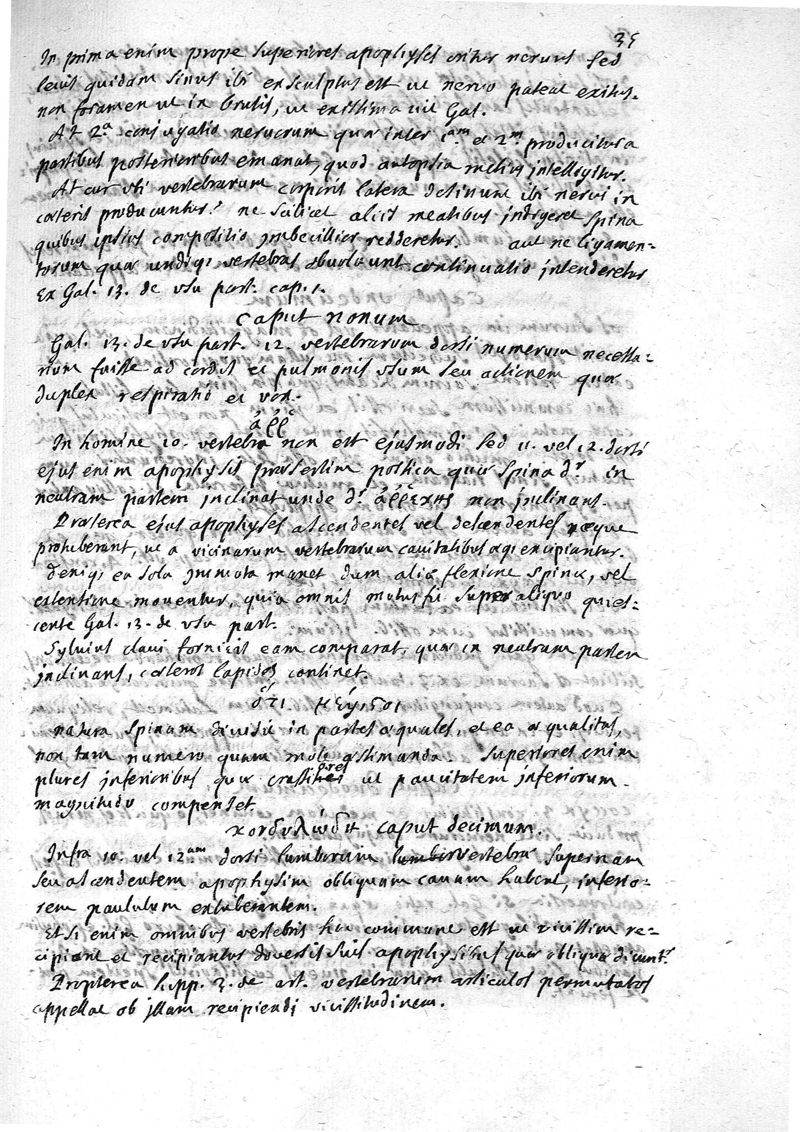 35
In prima enim prope superiores apophyses oritur nervus sed
levis quidam sinus ibi exsculptus est ut nervo pateat exitus.
non foramen ut in brutis, ut existimavit Gal.
At 2.a conjugatio nervorum quæ inter 1.am et 2.m producitur a
partibus posterioribus emanat, quod autopsia melius intelligitur.
At cur ubi vertebrarum corporis latera desinunt ibi nervi in
cæteris producuntur? ne scilicet aliis meatibus indigeret spina
quibus ipsius compositio imbecillior redderetur. aut ne ligamen-
torum quæ undiq; vertebras obvolvunt continuatio intenderetur
Ex Gal. 13. de usu part. cap. 1.
Caput nonum
Gal. 13. de usu part. 12. vertebrarum dorsi numerum necessa-
rium fuisse ad cordis et pulmonis usum seu actionem quæ
duplex respiratio et vox.
ἀρρ
In homine 10. vertebra non est ejusmodi sed 11. vel 12. dorsi
ejus enim apophysis præsertim postica quæ spina dr in
neutram partem inclinat unde dr ἀρρεπὴς non inclinans.
Præterea ejus apophyses ascendentes vel descendentes neque
protuberant, ut a vicinarum vertebrarum cavitatibus excipiantur.
deniq; ea sola immota manet dum aliæ flexione spinæ, vel
extentione moventur, quia omnis motus fit super aliquo quies-
cente Gal. 13. de usu part.
Sylvius clavi fornicis eam comparat, quæ in neutram partem
inclinans, cæteros lapides continet.
ὅτι
natura spinam divisit in partes æquales, et ea æqualitas,
non tam numero quam mole æstimanda. Superiores enim
plures inferioribus quæ crassiores ut paucitatem inferiorum
magnitudo compenset.
κονδυλώδη. caput decimum.
Infra 10. vel 12.am dorsi lumborum vertebræ supernam
seu ascendentem apophysim obliquam cavam habent, inferio-
rem paululum extuberantem.
Etsi enim omnibus vertebris hoc commune est ut vicissim re-
cipiant et recipiantur diversis suis apophysibus quæ obliquæ dicunt.r
Propterea hipp. 3. de art. vertebrarum articulos permutatos
appellat ob illam recipiendi vicissitudinem.